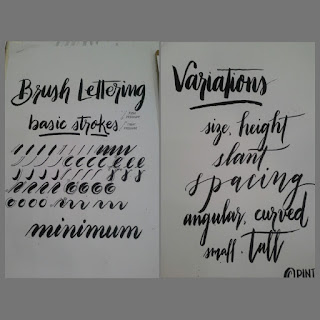 Brush Lettering
basic strokes
minimum
Variations
size, height
slant
spacing
angular, curved
small, Tall